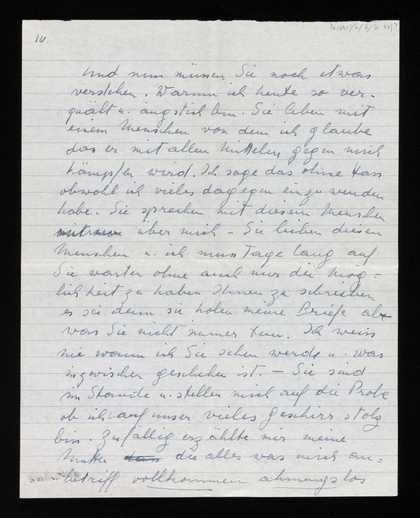 10.
Und nun müssen Sie noch etwas
verstehen. Warum ich heute so ver-
quält u. ängstlich bin. Sie leben mit
einem Menschen von dem ich glaube
das er mit allen Mitteln gegen mich
kämpfen wird. Ich sage das ohne Hass
obwohl ich vieles dagegen einzuwenden
habe. Sie sprechen mit diesem Menschen
über mich - Sie lieben diesen
Menschen u. ich muss Tage lang auf
Sie warten ohne auch nur die Mög-
lichkeit zu haben Ihnen zu schreiben
es sei denn sie holen meine Briefe ab
was Sie nicht immer tun. Ich weiss
nie wann ich Sie sehen werde u. was
inzwischen geschehen ist. - Sie sind
im Stande u. stellen mich auf die Probe
ob ich auf unser vieles Geschirr stolz
bin. Zufällig erzählte mir meine
Mutter die alles was mich an-
betriff vollkommen ahnungslos